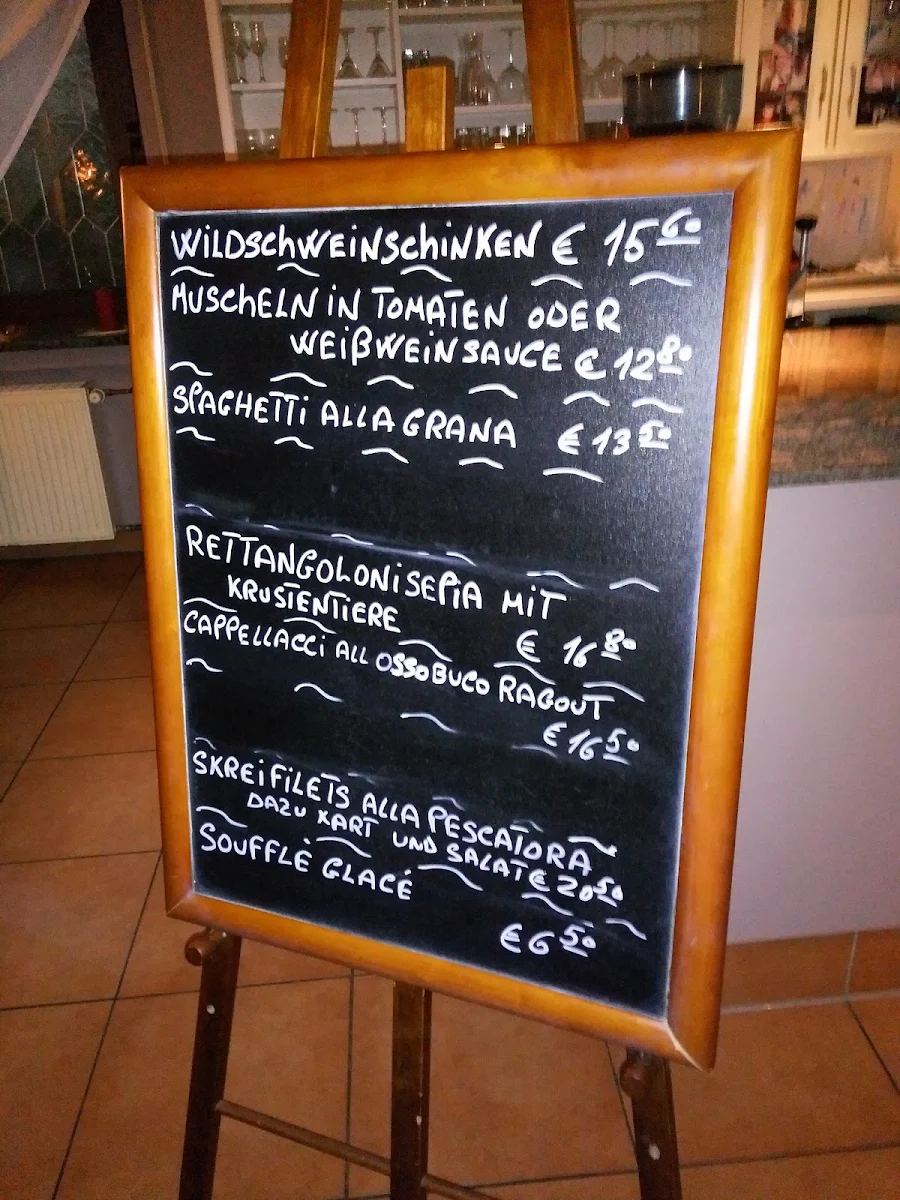 WILDSCHWEINSCHINKEN € 15 60
MUSCHELN IN TOMATEN ODER
WEIßWEINSAUCE € 12 80
SPAGHETTI ALLA GRANA € 13 50
RETTANGOLONI SEPIA MIT
KRUSTENTIERE € 16 80
CAPPELLACCI ALL OSSOBUCO RAGOUT
€ 16 50
SKREIFILETS ALLA PESCATORA
DAZU KART UND SALAT € 20 50
SOUFFLÈ GLACÉ
€ 6 50